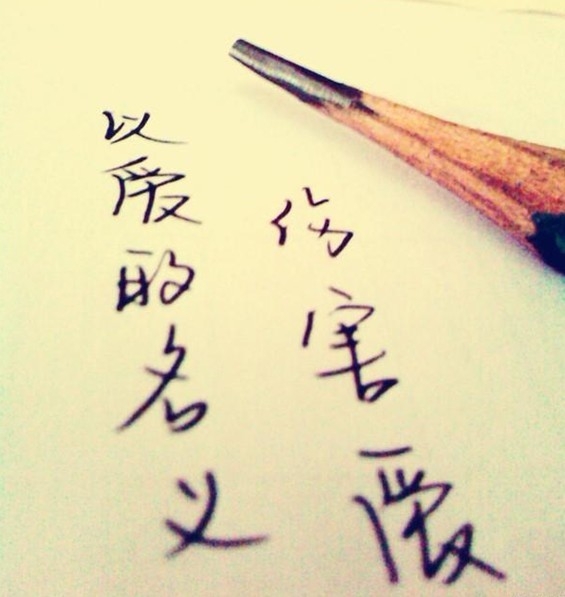 以爱的名义
伤害爱